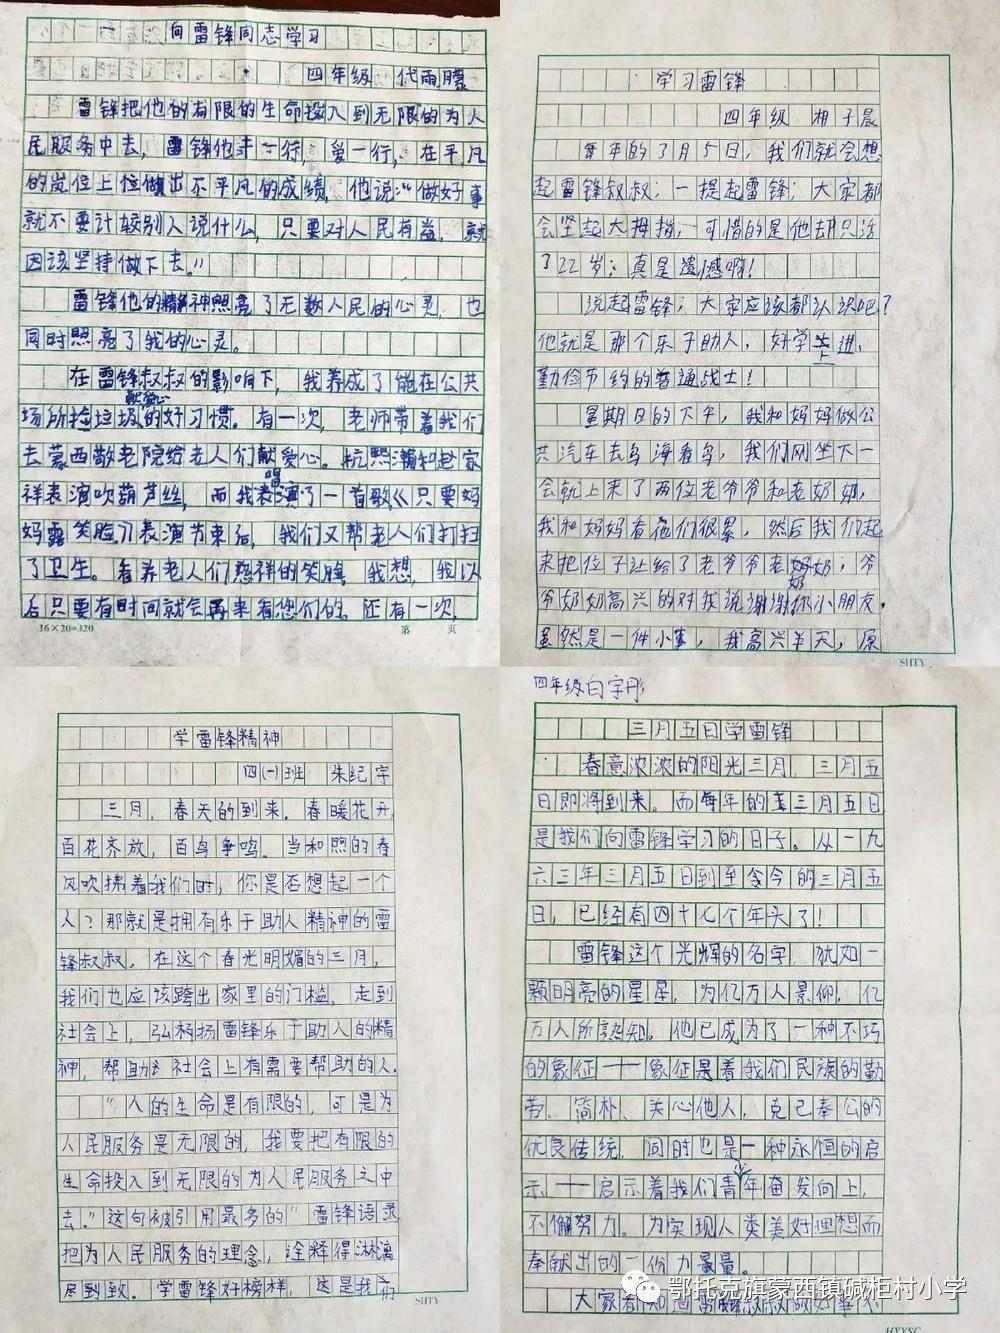 向雷锋同志学习
四年级 代雨朦
雷锋把他的有限的生命投入到无限的为人
民服务中去，雷锋他干一行，爱一行，在平凡
的岗位上位做出不平凡的成绩，他说：“做好事
就不要计较别人说什么，只要对人民有益，就
因该坚持做下去。”
雷锋他的精神照亮了无数人民的心灵，也
同时照亮了我的心灵。
在雷锋叔叔的影响下，我养成了能在公共
场所捡垃圾的好习惯。有一次，老师带着我们
去蒙西敬老院给老人们献爱心。杭熙潮和赵家
祥表演吹葫芦丝，而我表演唱了一首歌《只要妈
妈露笑脸》表演节束后，我们又帮老人们打扫
了卫生。看养老人们慈祥的笑脸，我想，我以
后只要有时间就会再来看您们的。还有一次，
16×20=320 第 页
学习雷锋
四年级 相子晨
每年的3月5日，我们就会想
起雷锋叔叔；一提起雷锋；大家都
会坚起大拇指，可惜的是他却只活
了22岁；真是遗憾啊！
说起雷锋；大家应该都认识吧？
他就是那个乐于助人，好学上进、
勤俭节约的普通战士！
星期日的下午，我和妈妈做公
共汽车去乌海看鸟，我们刚坐下一
会就上来了两位老爷爷和老奶奶，
我和妈妈看他们很累，然后我们起
来把位子让给了老爷爷老奶奶；爷
爷奶奶高兴的对我说谢谢你小朋友。
虽然是一件小事，我高兴半天，原
SHTY
学雷锋精神
四(一)班 朱纪宇
三月，春天的到来。春暖花开，
百花齐放，百鸟争鸣。当和煦的春
风吹拂着我们时，你是否想起一个
人？那就是拥有乐于助人精神的雷
锋叔叔。在这个春光明媚的三月，
我们也应该跨出家里的门槛，走到
社会上，弘扬雷锋乐于助人的精
神，帮助社会上有需要帮助的人。
“人的生命是有限的，可是为
人民服务是无限的，我要把有限的
生命投入到无限的为人民服务之中
去。”这句被引用最多的“雷锋语录
把为人民服务的理念，诠释得淋漓
尽到致。学雷锋好榜样，这是我们
SHTY
四年级白宇彤
三月五日学雷锋
春意浓浓的阳光三月，三月五
日即将到来。而每年的三月五日
是我们向雷锋学习的日子。从一九
六三年三月五日到至今的三月五
日，已经有四十七个年头了！
雷锋这个光辉的名字，犹如一
颗明亮的星星，为亿万人景仰，亿
万人所熟知。他已成为了一种不巧
的象征——象征是着我们民族的勤
劳、简朴、关心他人，克己奉公的
优良传统，同时也是一种永恒的启
示——启示着我们青年奋发向上，
不懈努力。为实现人类美好理想而
奉献出的一份力量。
大家都知道雷锋叔叔做好事不
HYYSC
鄂托克旗蒙西镇碱柜村小学